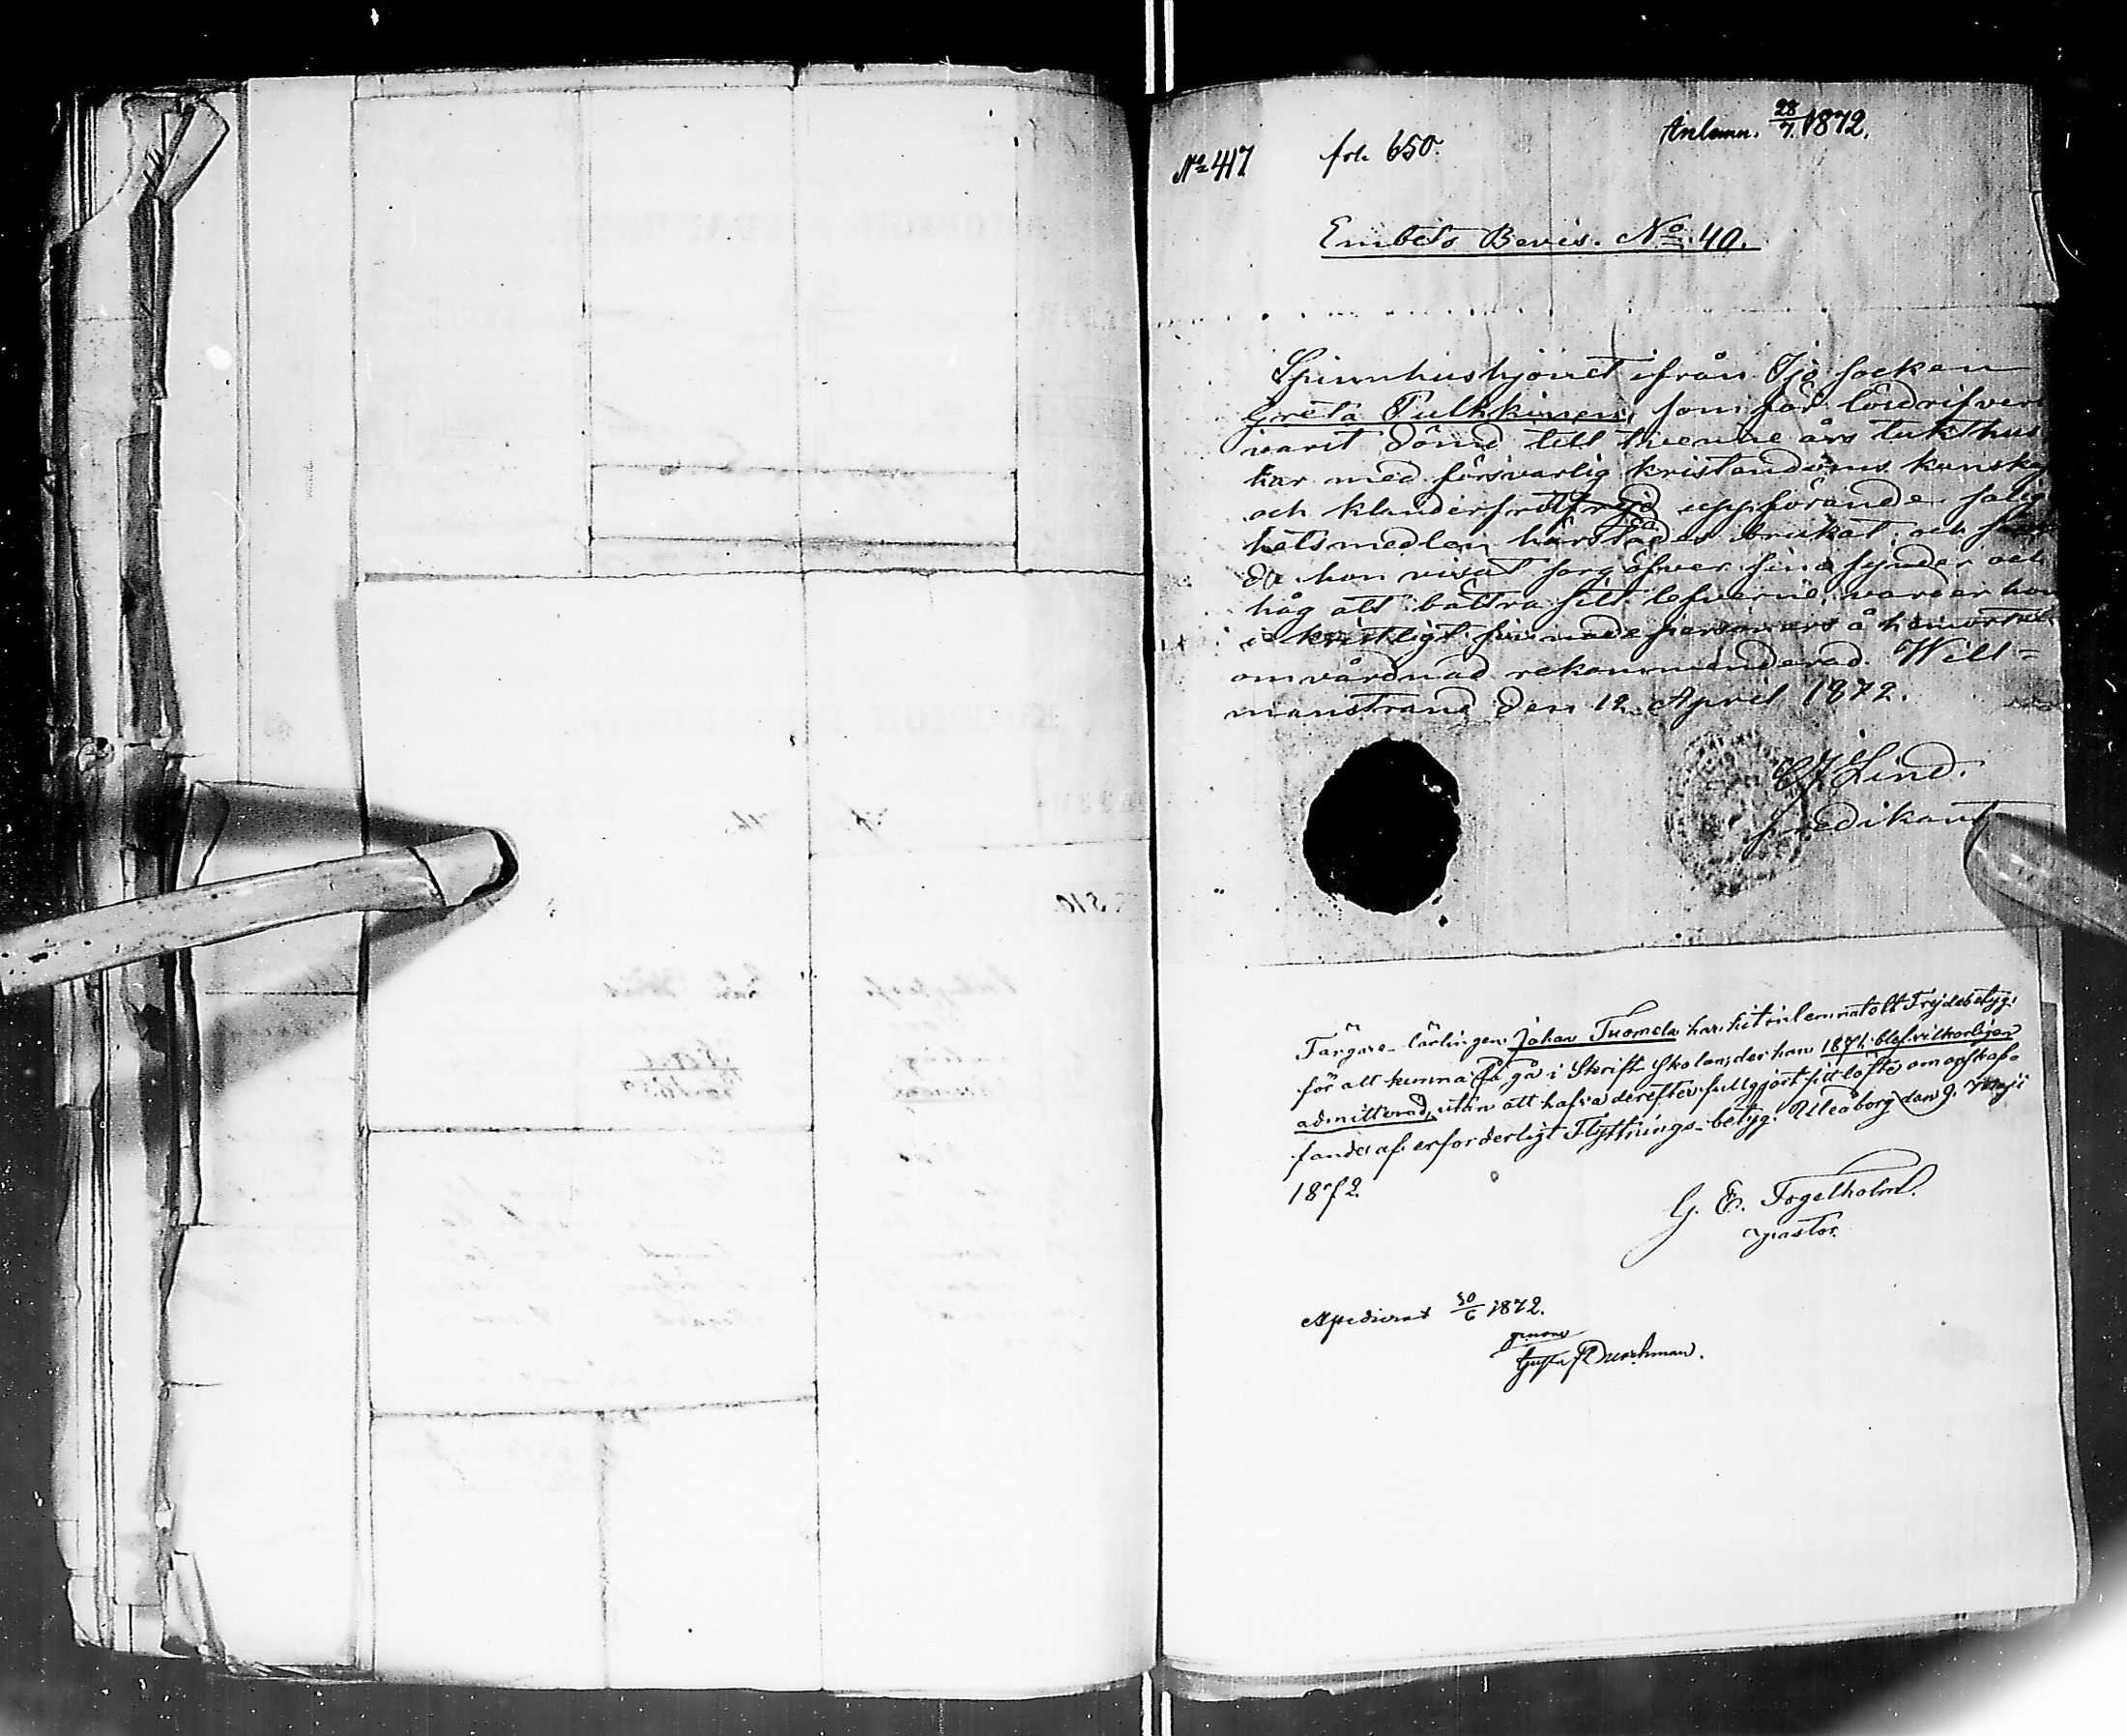 Anlemn. 28/7 1872.
No 417 fol. 650.
Embets Bevis. No. 40.
Spinnhushjonet ifrån Ijo socken
Greta Pulkkinen, som för lösdrifveri
varit dömd till tvenne års tukthus
har med försvarlig kristendoms kunskap
och klanderfritt uppförande salig
hetsmedlen härstädes brukat, och
då hon visat sorg öfver sina synder och
håg att bättra sitt lefverne, varder hon
i kristligt sinnade personers å hemorten
omvårdnad rekommenderad. Will-
manstrand den 12 April 1872.
Lind.
predikant
Färgare-lärlingen Johan Tuomela har hit inlemnat ett Frejdebetyg,
för att kunna få gå i Skrift-Skolan, der han 1871 blef vilkorligen
admitterad, utan att hafva derefter fullgjort sitt löfte om anskaf-
fande af erforderligt Flyttnings-betyg. Uleåborg den 9. Maji
1872.
G. E. Fogelholm.
pastor.
Expedierat 30/6 1872.
genom
Durchman.